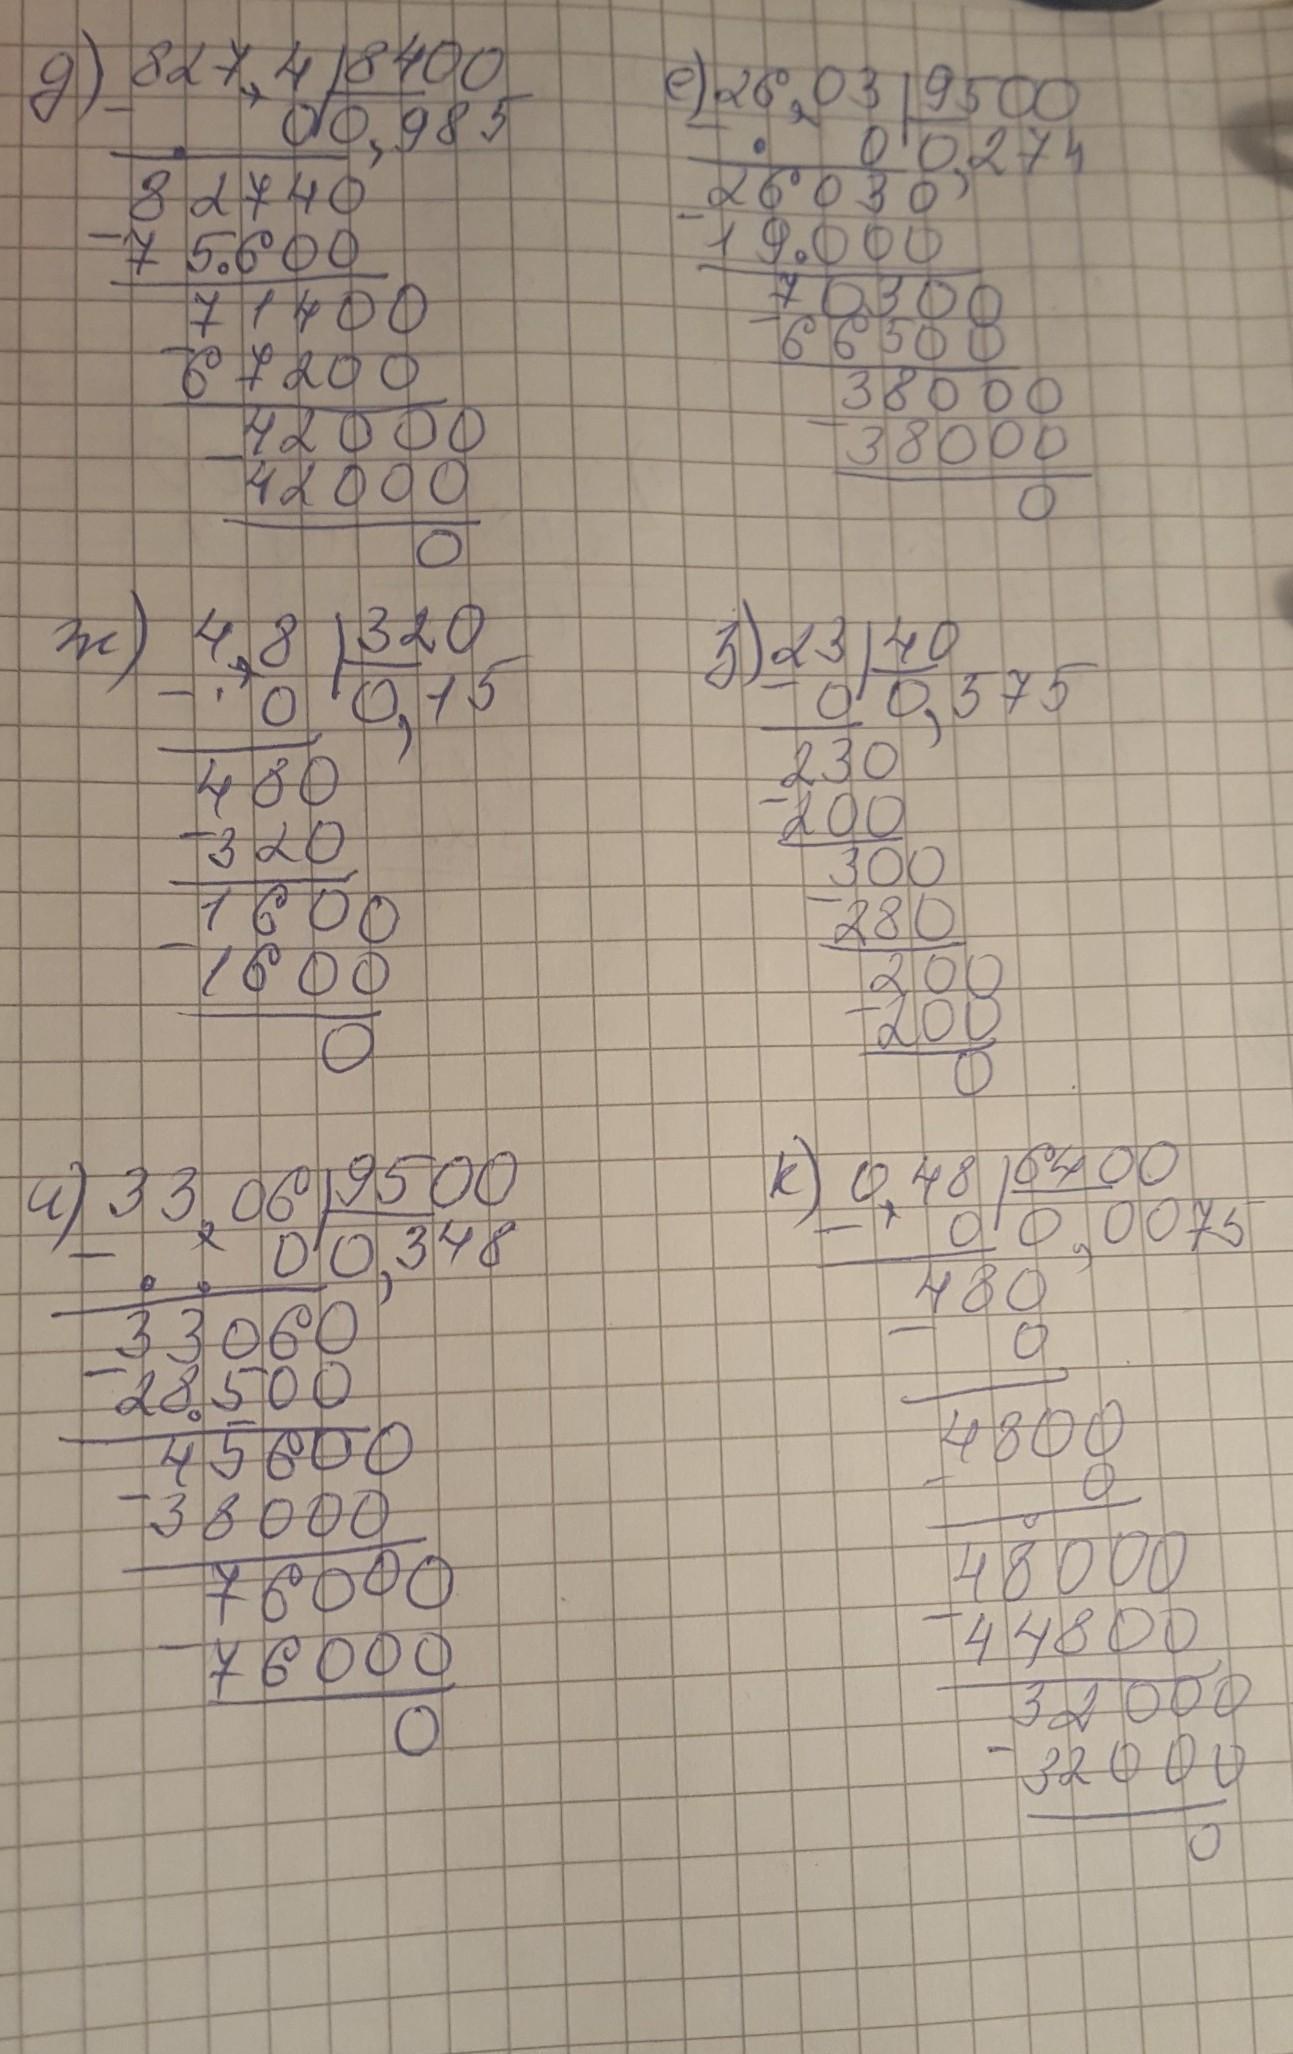 д) 827,4 | 8400
- 00 | 0,985
82740
- 75600
71400
- 67200
42000
- 42000
0
е) 26,03 | 9500
- 0 | 0,274
26030
- 19000
70300
- 66500
38000
- 38000
0
ж) 4,8 | 320
- 0 | 0,15
480
- 320
1600
- 1600
0
з) 23 | 40
- 0 | 0,575
230
- 200
300
- 280
200
- 200
0
и) 33,06 | 9500
- 0 | 0,348
33060
- 28500
45600
- 38000
76000
- 76000
0
к) 0,48 | 6400
- 0 | 0,0075
480
- 0
4800
- 0
48000
- 44800
32000
- 32000
0